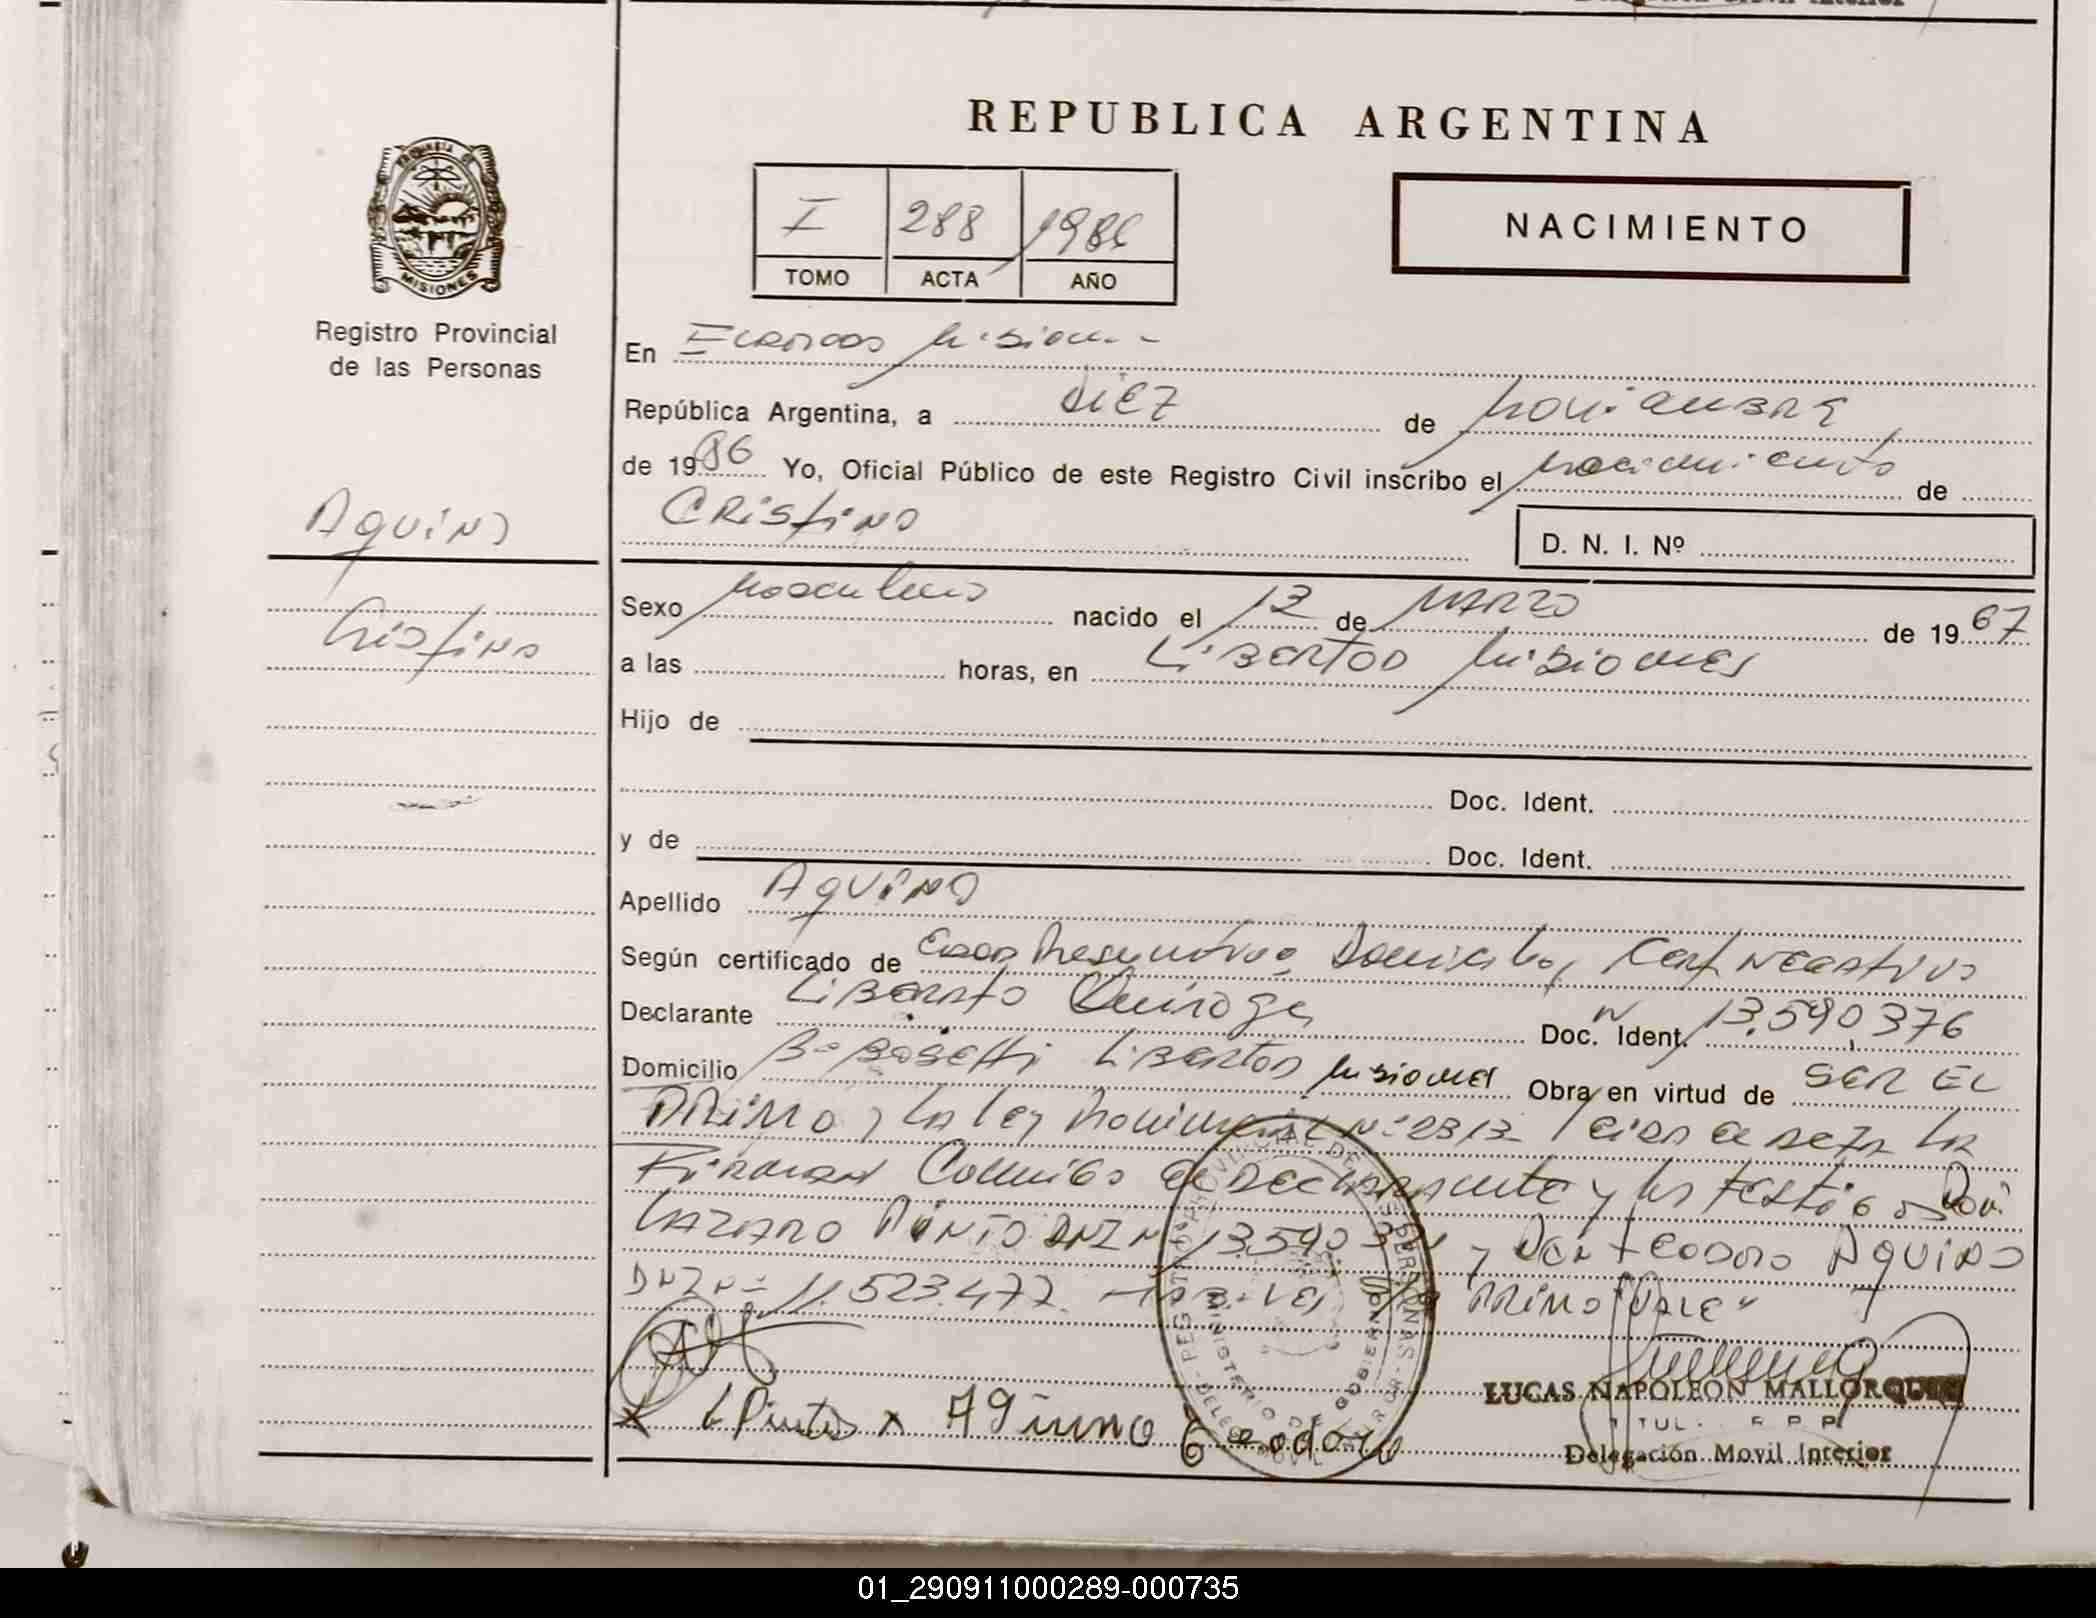 REPUBLICA ARGENTINA
PROVINCIA DE
MISIONES
Registro Provincial
de las Personas
I 288 1986
TOMO ACTA AÑO
NACIMIENTO
En Eldorado Misiones
República Argentina, a diez de noviembre
de 1986 Yo, Oficial Público de este Registro Civil inscribo el nacimiento de
Aquino
Cristino
D. N. I. Nº
Cristino
Sexo masculino nacido el 13 de Marzo de 1967
a las horas, en Libertad Misiones
Hijo de
Doc. Ident.
y de Doc. Ident.
Apellido Aquino
Según certificado de Edad Presuntiva, Domicilio, Cert Negativo
Declarante Liberato Quiroga Doc. Ident. 13.590.376
Domicilio Bº Bosetti Libertad Misiones Obra en virtud de SER EL
PRIMO y la Ley Provincial Nº 2313 leida el acta la
Firman Conmigo el Declarante y los testigos Don
LAZARO PINTO DNI Nº 13.590 y Don Teodoro Aquino
DNI Nº 11.523.477 PRIMO "VALE"
L Pinto x A Teodoro
LUCAS NAPOLEON MALLORQUIN
TUL. R P P
Delegación Movil Interior
REGISTRO PROVINCIAL DE LAS PERSONAS
MINISTERIO DE GOBIERNO
01_290911000289-000735